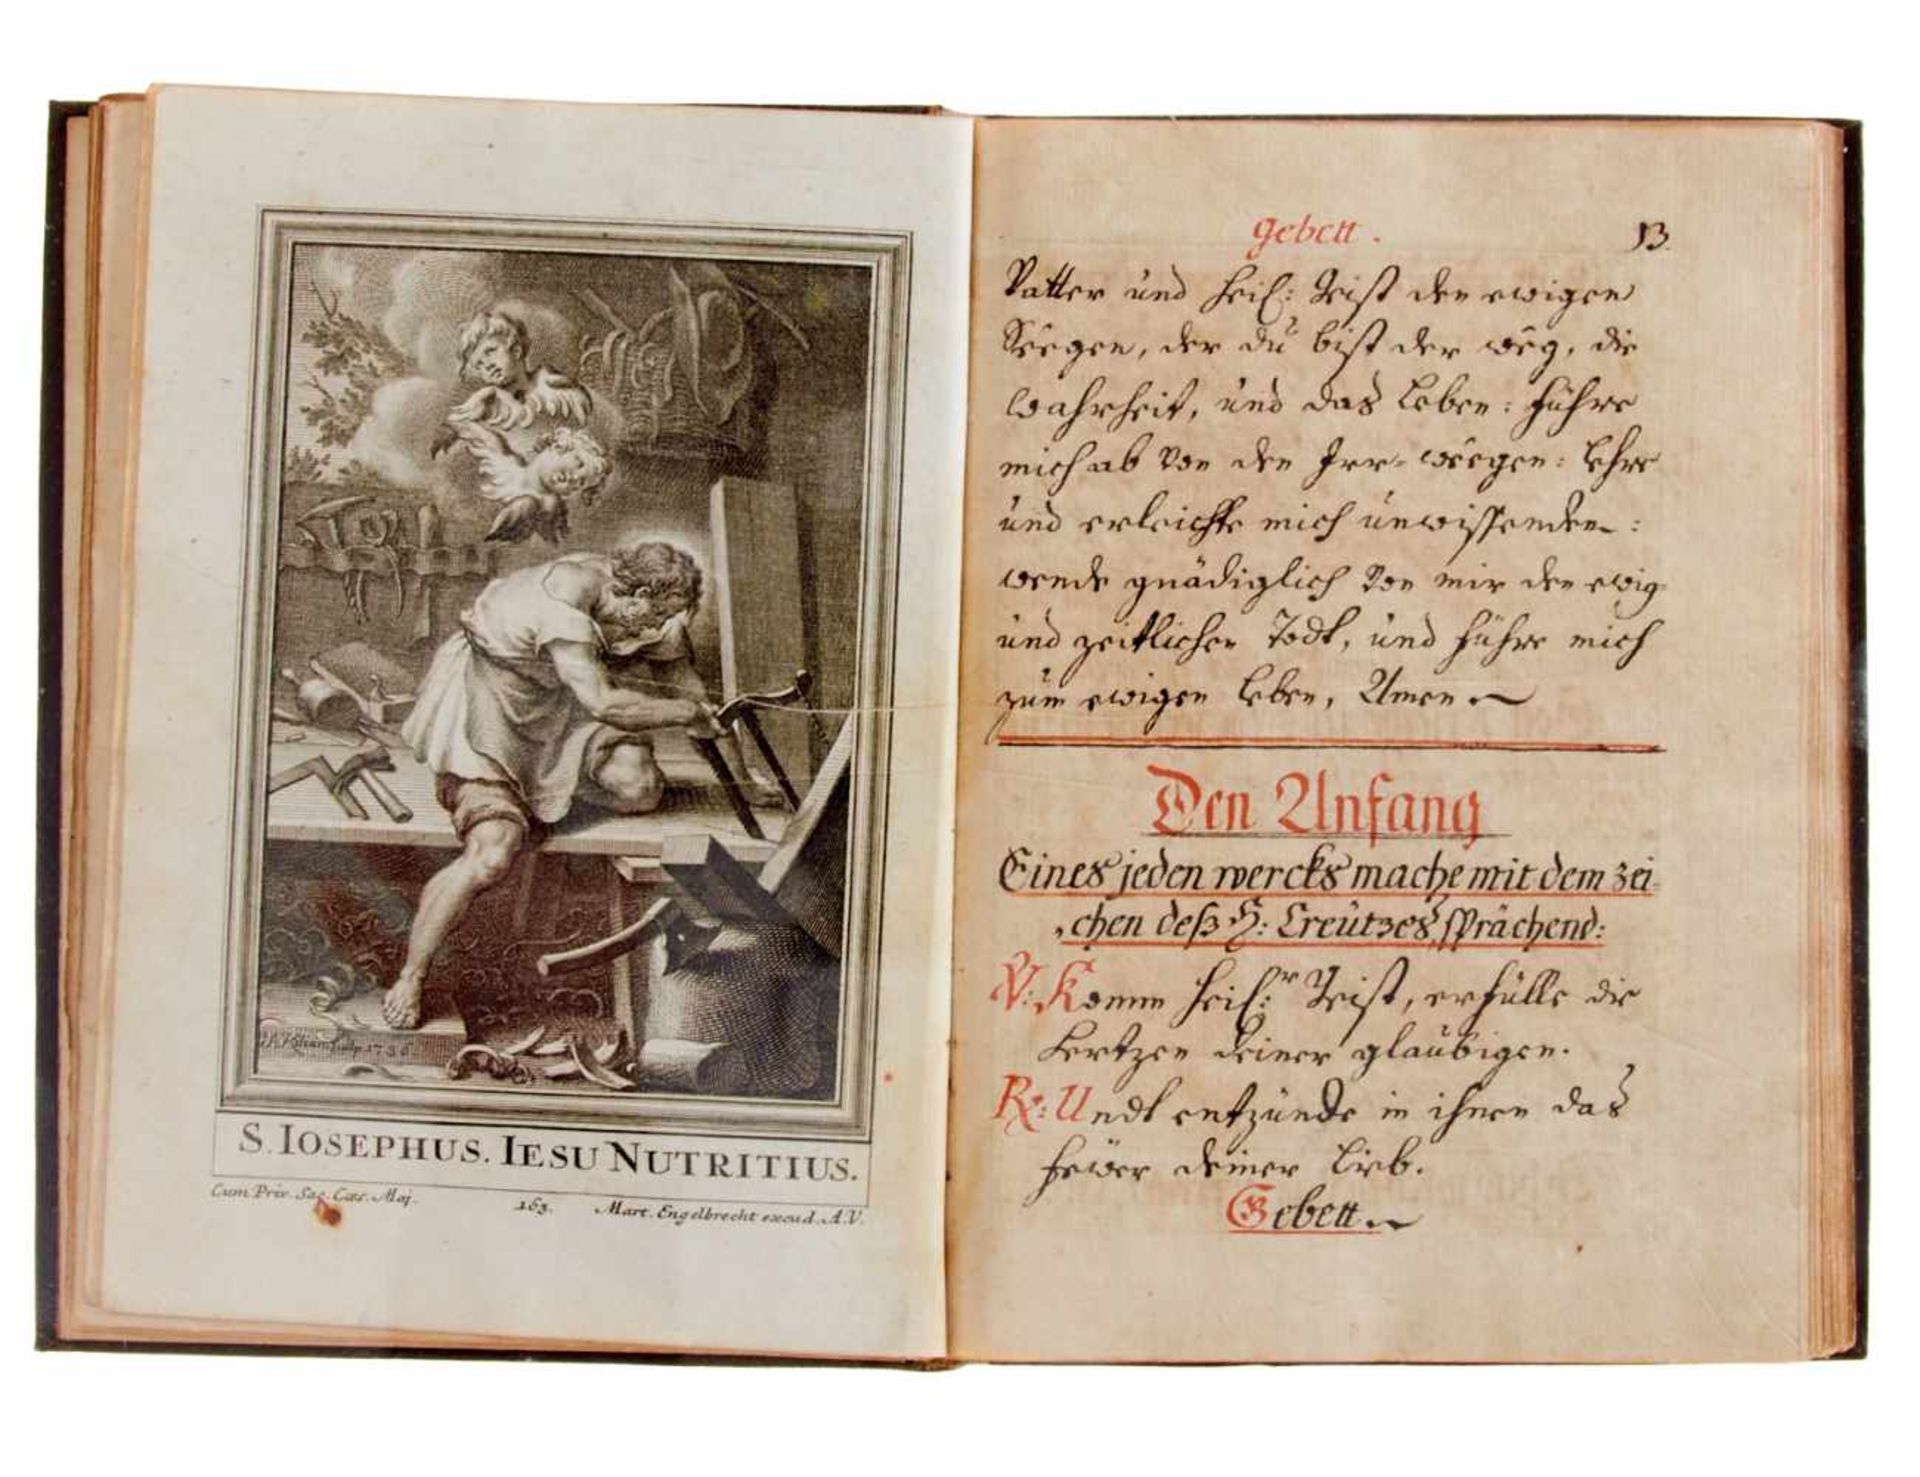 I. A. Kilian sculp. 1736.
S. IOSEPHUS. IESU NUTRITIUS.
Cum Priv. Sac. Cæs. Maj.
163.
Mart. Engelbrecht excud. A.V.
gebett.
13.
Vatter und heil: Geist den ewigen
Seegen, der du bist der weeg, die
wahrheit, und das Leben: führe
mich ab von den Irr-weegen: lehre
und erleichte mich unwissenden:
wende gnädiglich von mir den ewig
und zeitlichen Todt, und führe mich
zum ewigen Leben, Amen.
Den Anfang
Eines jeden wercks mache mit dem zei-
chen deß H: Creützes, sprächend:
V: Komm heil:r Geist, erfülle die
Hertzen deiner glaubigen.
R: Undt entzünde in ihnen das
fewer deiner Lieb.
Gebett.